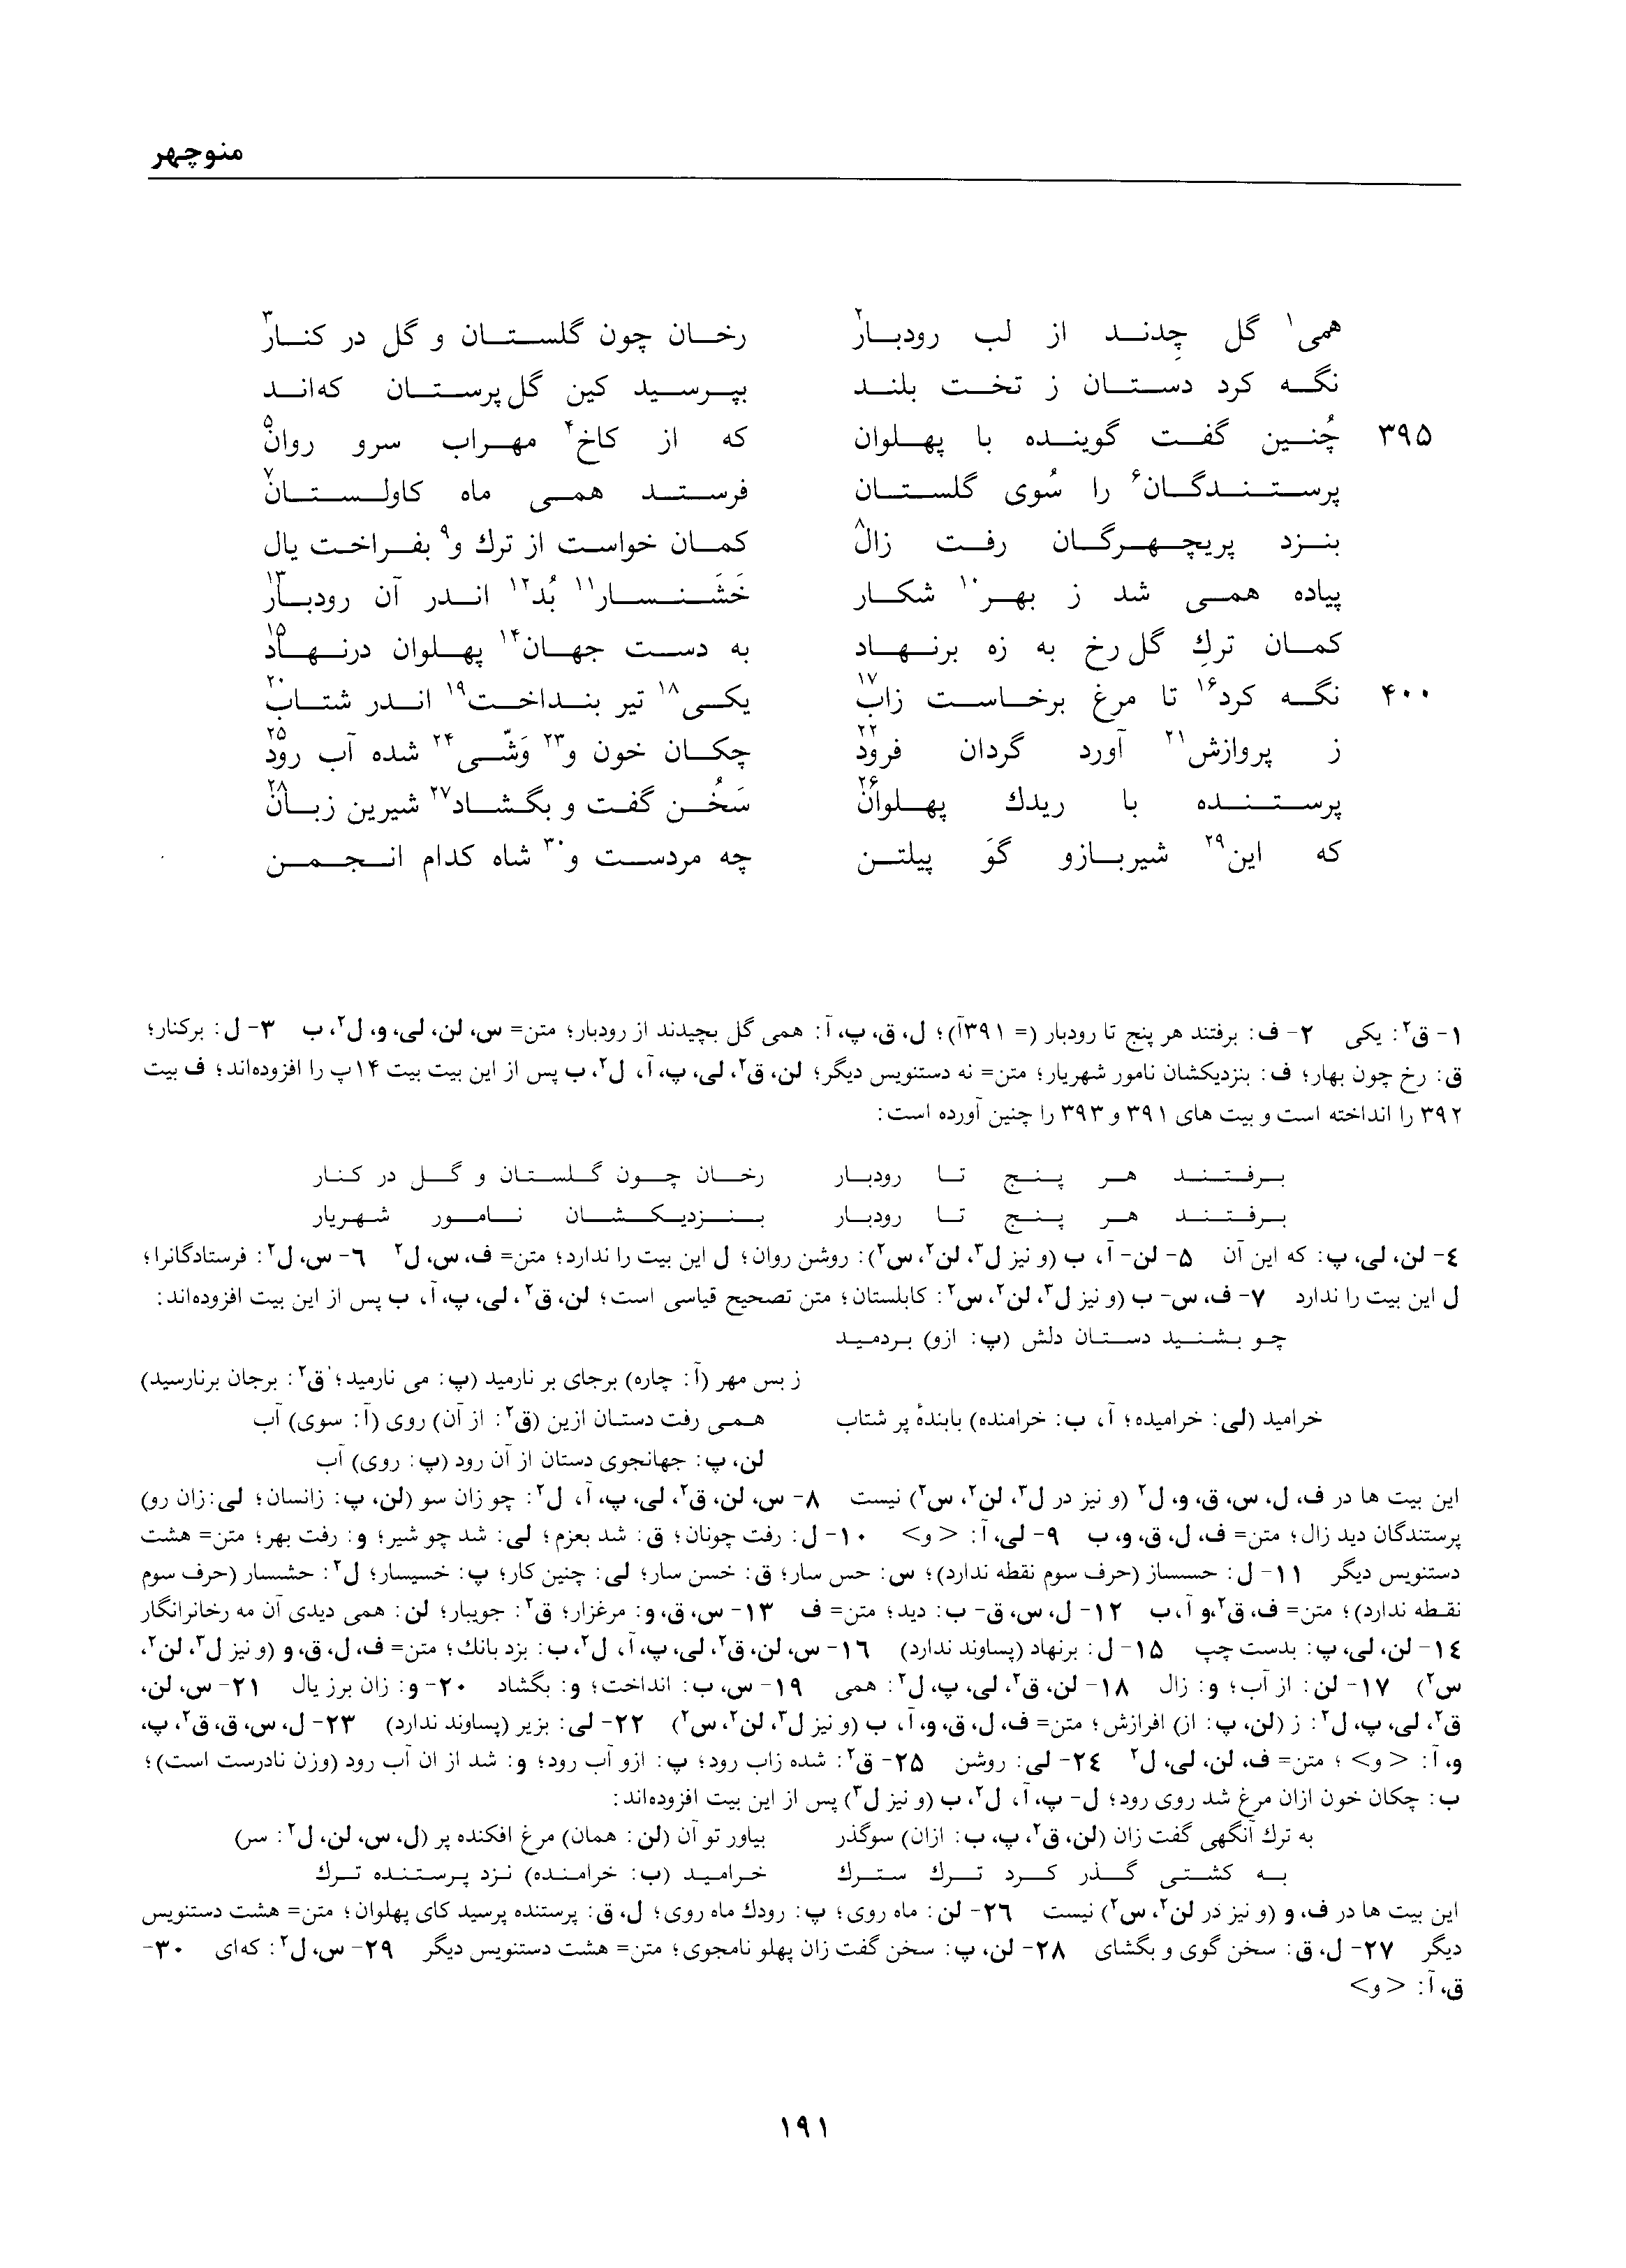 منوچهر
همی۱ گل چِدند از لب رودبار۲ رخان چون گلستان و گل در کنار۳
نگه کرد دستان ز تخت بلند بپرسید کین گل‌پرستان که‌اند
۳۹۵ چُنین گفت گوینده با پهلوان که از کاخ۴ مهراب سرو روان۵
پرستندگان۶ را سُوی گلستان فرستد همی ماه کاولستان۷
بنزد پریچهرگان رفت زال۸ کمان خواست از ترك و۹ بفراخت یال
پیاده همی شد ز بهر۱۰ شکار خَشَنسار۱۱ بُد۱۲ اندر آن رودبار۱۳
کمان تركِ گل‌رخ به زه برنهاد به دست جهان۱۴ پهلوان درنهاد۱۵
۴۰۰ نگه کرد۱۶ تا مرغ برخاست زاب۱۷ یکی۱۸ تیر بنداخت۱۹ اندر شتاب۲۰
ز پروازش۲۱ آورد گردان فرود۲۲ چکان خون و۲۳ وَشّی۲۴ شده آب رود۲۵
پرستنده با ریدك پهلوان۲۶ سَخُن گفت و بگشاد۲۷ شیرین زبان۲۸
که این۲۹ شیربازو گَو پیلتن چه مردست و۳۰ شاه کدام انجمن
۱- ق۲: یکی ۲- ف: برفتند هر پنج تا رودبار (= ۳۹۱آ)؛ ل، ق، پ، آ: همی گل بچیدند از رودبار؛ متن= س، لن، لی، و، ل۲، ب ۳- ل: برکنار؛
ق: رخ چون بهار؛ ف: بنزدیکشان نامور شهریار؛ متن= نه دستنویس دیگر؛ لن، ق۲، لی، پ، آ، ل۲، ب پس از این بیت بیت ۱۴پ را افزوده‌اند؛ ف بیت
۳۹۲ را انداخته است و بیت های ۳۹۱ و ۳۹۳ را چنین آورده است:
برفتند هر پنج تا رودبار رخان چون گلستان و گل در کنار
برفتند هر پنج تا رودبار بنزدیکشان نامور شهریار
۴- لن، لی، پ: که این آن ۵- لن- آ، ب (و نیز ل۳، لن۲، س۲): روشن روان؛ ل این بیت را ندارد؛ متن= ف، س، ل۲ ۶- س، ل۲: فرستادگانرا؛
ل این بیت را ندارد ۷- ف، س- ب (و نیز ل۳، لن۲، س۲: کابلستان؛ متن تصحیح قیاسی است؛ لن، ق۲، لی، پ، آ، ب پس از این بیت افزوده‌اند:
چو بشنید دستان دلش (پ: ازو) بردمید
ز بس مهر (آ: چاره) برجای بر نارمید (پ: می نارمید؛ ق۲: برجان برنارسید)
خرامید (لی: خرامیده؛ آ، ب: خرامنده) بابندهٔ پر شتاب همی رفت دستان ازین (ق۲: از آن) روی (آ: سوی) آب
لن، پ: جهانجوی دستان از آن رود (پ: روی) آب
این بیت ها در ف، ل، س، ق، و، ل۲ (و نیز در ل۳، لن۲، س۲) نیست ۸- س، لن، ق۲، لی، پ، آ، ل۲: چو زان سو (لن، پ: زانسان؛ لی:زان رو)
پرستندگان دید زال؛ متن= ف، ل، ق، و، ب ۹- لی، آ: <و> ۱۰- ل: رفت چونان؛ ق: شد بعزم؛ لی: شد چو شیر؛ و: رفت بهر؛ متن= هشت
دستنویس دیگر ۱۱- ل: حسساز (حرف سوم نقطه ندارد)؛ س: حس سار؛ ق: خسن سار؛ لی: چنین کار؛ پ: خسیسار؛ ل۲: حشسار (حرف سوم
نقطه ندارد)؛ متن= ف، ق۲،و آ،ب ۱۲- ل، س، ق- ب: دید؛ متن= ف ۱۳- س، ق، و: مرغزار؛ ق۲: جویبار؛ لن: همی دیدی آن مه رخانرانگار
۱۴- لن، لی، پ: بدست چپ ۱۵- ل: برنهاد (پساوند ندارد) ۱۶- س، لن، ق۲، لی، پ، آ، ل۲، ب: بزد بانك؛ متن= ف، ل، ق، و (و نیز ل۳، لن۲،
س۲) ۱۷- لن: از آب؛ و: زال ۱۸- لن، ق۲، لی، پ، ل۲: همی ۱۹- س، ب: انداخت؛ و: بگشاد ۲۰- و: زان برز یال ۲۱- س، لن،
ق۲، لی، پ، ل۲: ز (لن، پ: از) افرازش؛ متن= ف، ل، ق، و، آ، ب (و نیز ل۳، لن۲، س۲) ۲۲- لی: بزیر (پساوند ندارد) ۲۳- ل، س، ق، ق۲، پ،
و، آ: <و>؛ متن= ف، لن، لی، ل۲ ۲۴- لی: روشن ۲۵- ق۲: شده زاب رود؛ پ: ازو آب رود؛ و: شد از ان آب رود (وزن نادرست است)؛
ب: چکان خون ازان مرغ شد روی رود؛ ل- پ، آ، ل۲، ب (و نیز ل۳) پس از این بیت افزوده‌اند:
به ترك آنگهی گفت زان (لن، ق۲، پ، ب: ازان) سوگذر بیاور تو آن (لن: همان) مرغ افکنده پر (ل، س، لن، ل۲: سر)
به کشتی گذر کرد ترك سترك خرامید (ب: خرامنده) نزد پرستنده ترك
این بیت ها در ف، و (و نیز در لن۲، س۲) نیست ۲۶- لن: ماه روی؛ پ: رودك ماه روی؛ ل، ق: پرستنده پرسید کای پهلوان؛ متن= هشت دستنویس
دیگر ۲۷- ل، ق: سخن گوی و بگشای ۲۸- لن، پ: سخن گفت زان پهلو نامجوی؛ متن= هشت دستنویس دیگر ۲۹- س، ل۲: که‌ای ۳۰-
ق، آ: <و>
۱۹۱